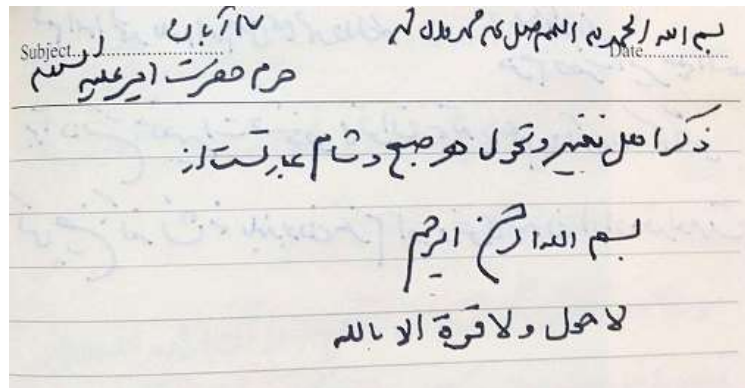 بسم الله الحمدلله اللهم صل علی محمد و آل محمد
۱۷ آبان
Subject............ Date............
حرم حضرت امیر علیه السلام
ذکر اهل تغییر و تحول هر صبح و شام عبارتست از
بسم الله الرحمن الرحیم
لا حول ولا قوة الا بالله